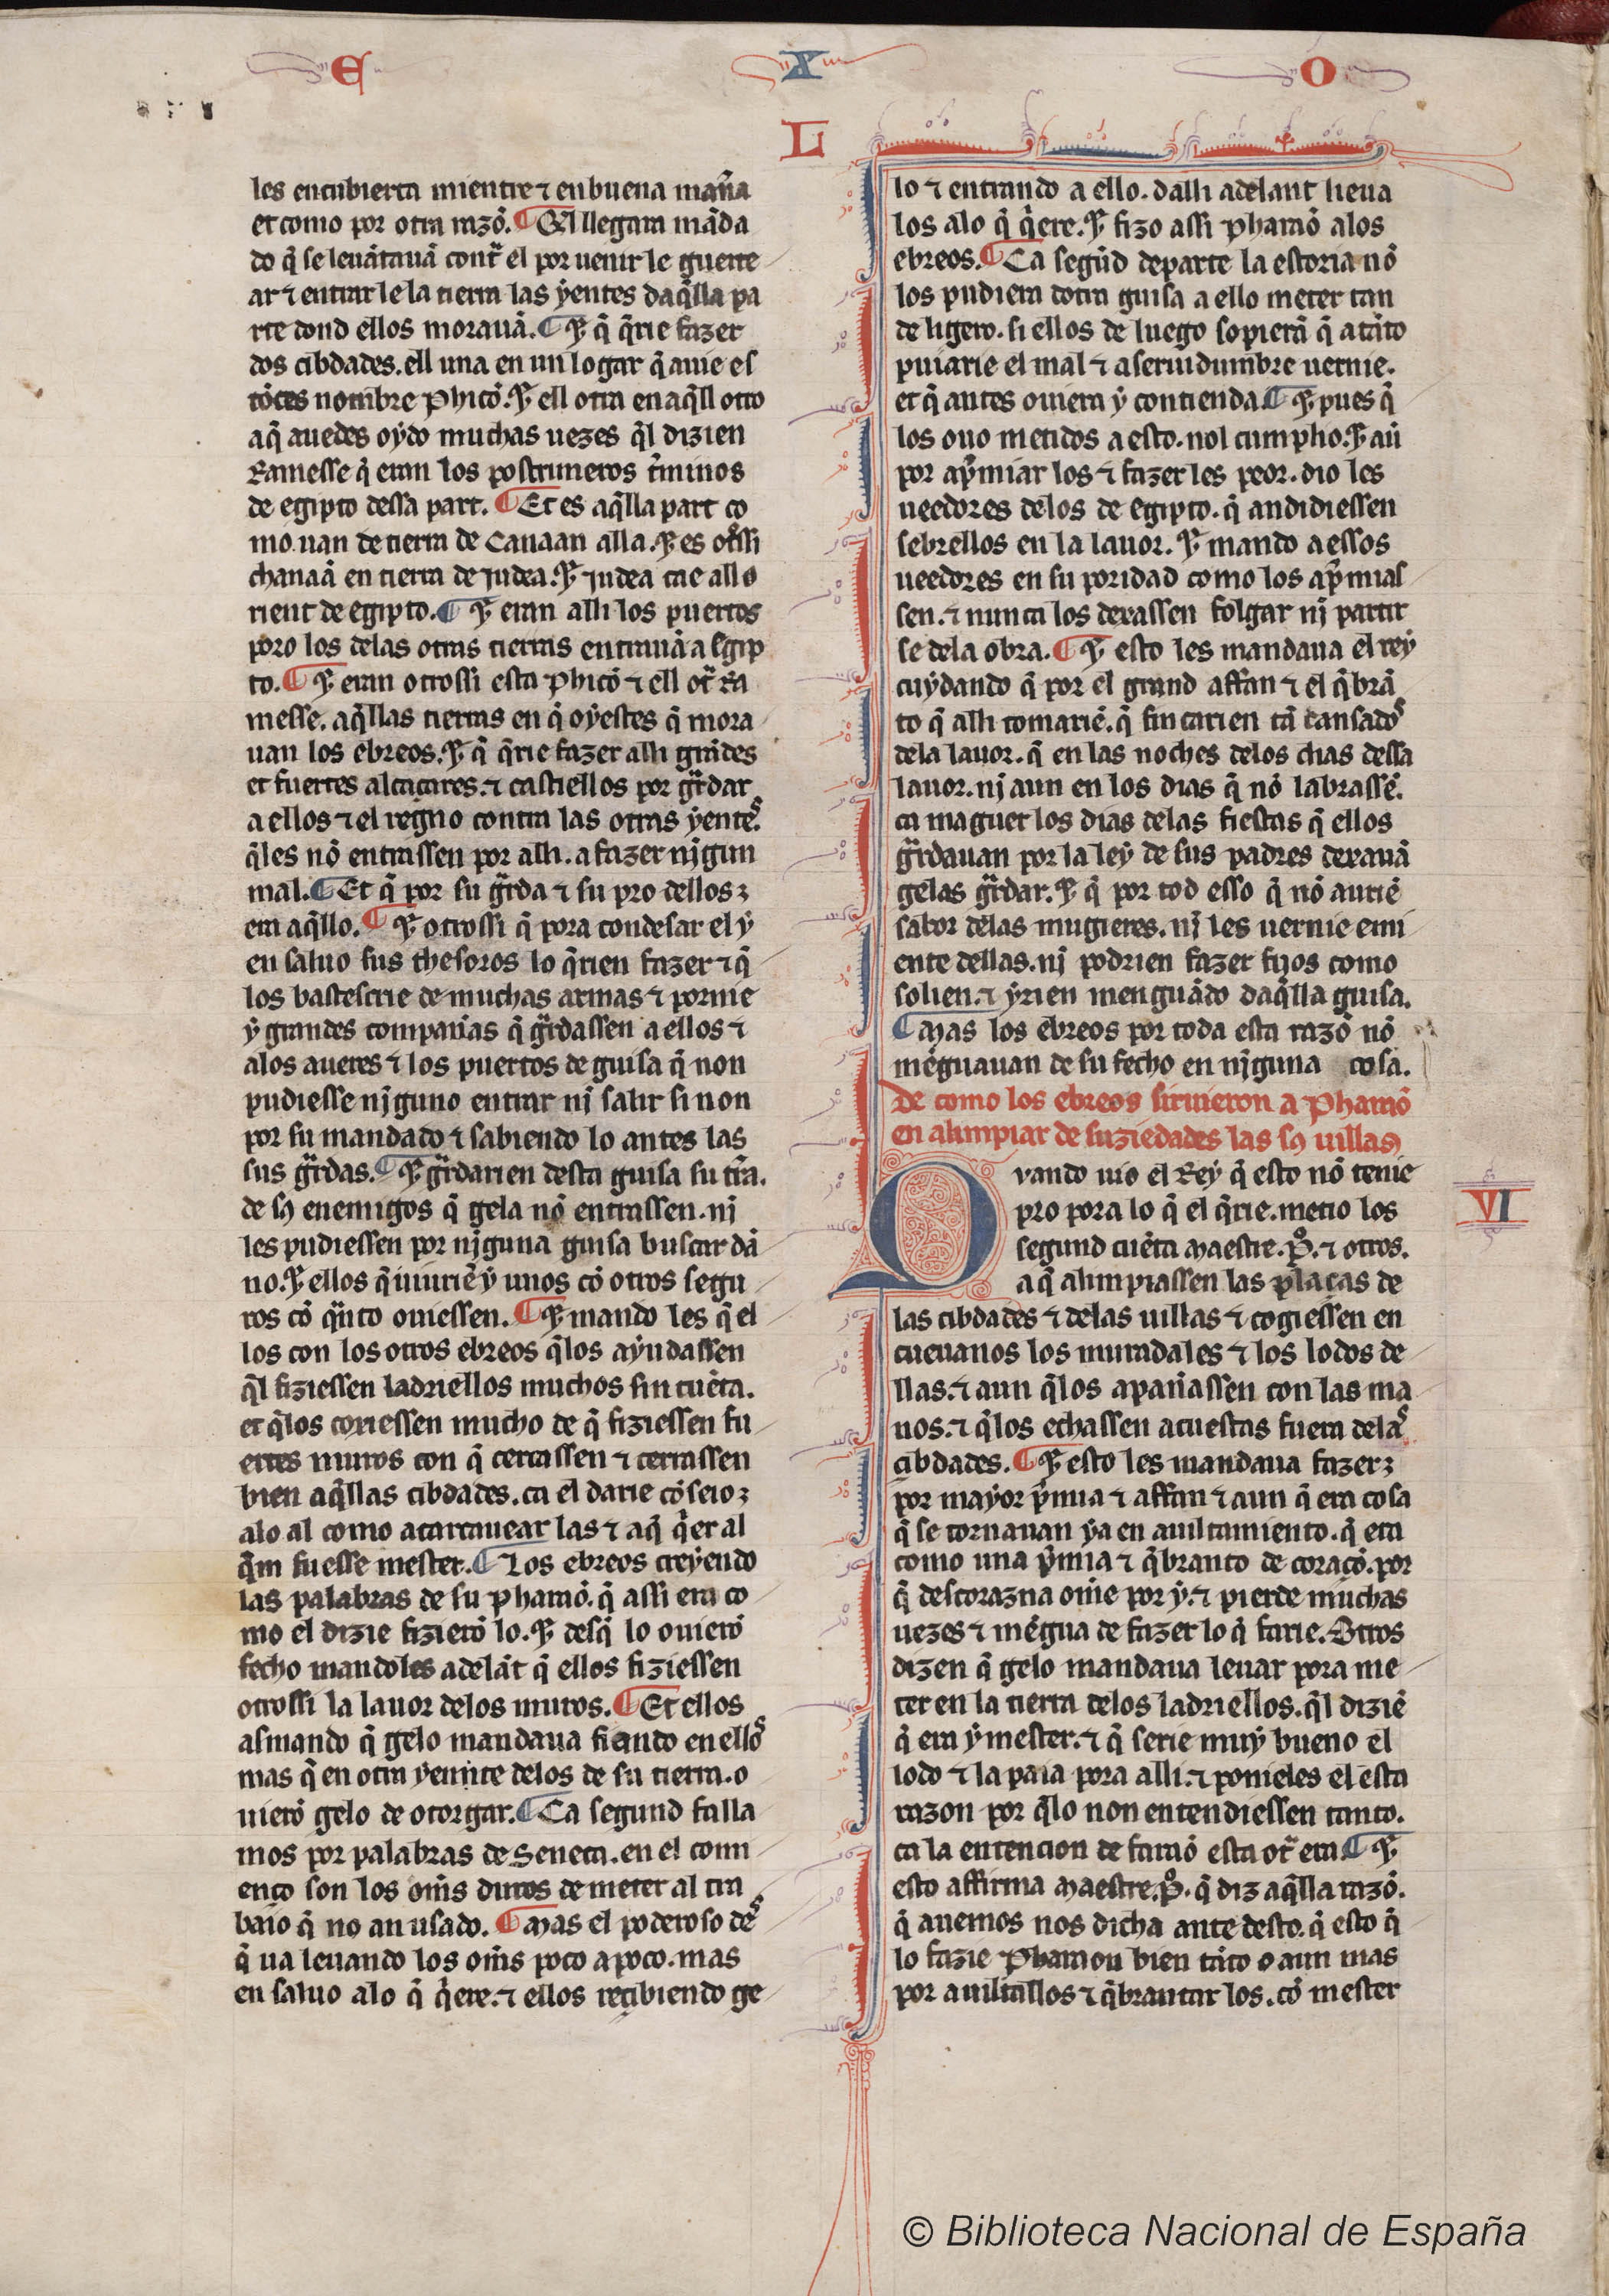 E X O
L
les encubierta mientre ⁊ en buena man̄a
et como por otra razō. ¶ Q̄l llegara māda
do q̄ se leuātauā contr̄ el por uenir le guerre
ar ⁊ entrar le la tierra las yentes daq̄lla pa
rte dond ellos morauā. ¶ ⁊ q̄ q̄rie fazer
dos cibdades. ell una en un logar q̄ auie es
tōces nombre Phitō. ⁊ ell otra en aq̄ll otro
a q̄ auedes oydo muchas uezes q̄l dizien
Ramesse q̄ eran los postrimeros t̄minos
de egipto dessa part. ¶ Et es aq̄lla part co
mo uan de tierra de Canaan alla. ⁊ es otssi
chanaā en tierra de Judea. ⁊ Judea cae all o
rient de egipto. ¶ ⁊ eran alli los puertos
poro los delas otras tierras entrauā a Egip
to. ¶ ⁊ eran otrossi esta Phitō ⁊ ell otr̄ Ra
messe. aq̄llas tierras en q̄ oyestes q̄ mora
uan los ebreos. ⁊ q̄ q̄rie fazer alli grādes
et fuertes alcaçares. ⁊ castiellos por gr̄dar
a ellos ⁊ el regno contra las otras yentes.
q̄les nō entrassen por alli. a fazer nigun
mal. ¶ Et q̄ por su gr̄da ⁊ su pro dellos;
era aq̄llo. ¶ ⁊ otrossi q̄ pora condesar el y
en saluo sus thesoros lo q̄rien fazer ⁊ q̄
los bastescrie de muchas armas ⁊ pornie
y grandes compan̄as q̄ gr̄dassen a ellos ⁊
alos aueres ⁊ los puertos de guisa q̄ non
pudiesse niguno entrar ni salir si non
por su mandado ⁊ sabiendo lo antes las
sus gr̄das. ¶ ⁊ gr̄darien desta guisa su tr̄a.
de sꝯ enemigos q̄ gela nō entrassen. ni
les pudiessen por niguna guisa buscar dā
no. ⁊ ellos q̄ uiuriē y unos cō otros segu
ros cō q̄nto ouiessen. ¶ ⁊ mando les q̄ el
los con los otros ebreos q̄los ayudassen
q̄l fiziessen ladriellos muchos sin cuēta.
et q̄los coxiessen mucho de q̄ fiziessen fu
ertes muros con q̄ cercassen ⁊ cerrassen
bien aq̄llas cibdades. ca el darie cōseio;
alo al como acarcauear las ⁊ a q̄ q̄er al
q̄m fuesse mester. ¶ Los ebreos creyendo
las palabras de su Pharaō. q̄ assi era co
mo el dizie fizierō lo. ⁊ desq̄ lo ouierō
fecho mandoles adelāt q̄ ellos fiziessen
otrossi la lauor delos muros. ¶ Et ellos
asmando q̄ gelo mandaua fiando en ellos
mas q̄ en otra yente delos de su tierra. o
uierō gelo de otorgar. ¶ Ca segund falla
mos por palabras de Seneca. en el comi
enço son los om̄s duros de meter al tra
baio q̄ no an usado. ¶ Mas el poderoso des
q̄ ua leuando los om̄s poco a poco. mas
en saluo alo q̄ q̄ere. ⁊ ellos recibiendo ge
lo ⁊ entrando a ello. dalli adelant lieua
los alo q̄ q̄ere. ⁊ fizo assi Pharaō alos
ebreos. ¶ Ca segūd departe la estoria nō
los pudiera dotra guisa a ello meter tan
de ligero. si ellos de luego sopierā q̄ a tāto
puiarie el mal ⁊ a seruidumbre uernie.
et q̄ antes ouiera y contienda. ¶ ⁊ pues q̄
los ouo metidos a esto. nol cumplio. ⁊ aū
por ap̄miar los ⁊ fazer les peor. dio les
ueedores delos de egipto. q̄ andidiessen
sebrellos en la lauor. ⁊ mando a essos
ueedores en su poridad como los ap̄mias
sen. ⁊ nunca los dexassen folgar ni partir
se dela obra. ¶ ⁊ esto les mandaua el rey
cuydando q̄ por el grand affan ⁊ el q̄brā
to q̄ alli tomariē. q̄ fincarien tā cansados
dela lauor. q̄ en las noches delos dias dessa
lauor. ni aun en los dias q̄ nō labrassē.
ca maguer los dias delas fiestas q̄ ellos
gr̄dauan por la ley de sus padres dexauā
gelas gr̄dar. ⁊ q̄ por tod esso q̄ nō auriē
sabor delas mugieres. ni les uernie emi
ente dellas. ni podrien fazer fijos como
solien. ⁊ yrien menguādo daq̄lla guisa.
¶ Mas los ebreos por toda esta razō nō
mēguauan de su fecho en niguna cosa.
De como los ebreos siruieron a Pharaō
en alimpiar de suziedades las sꝯ uillas
Quando uio el Rey q̄ esto nō tenie
pro pora lo q̄ el q̄rie. metio los
segund cuēta Maestre. P̊. ⁊ otros.
a q̄ alimpiassen las plaças de
las cibdades ⁊ delas uillas ⁊ cogiessen en
cueuanos los muradales ⁊ los lodos de
llas. ⁊ aun q̄los apan̄assen con las ma
nos. ⁊ q̄los echassen acuestas fuera delas
cibdades. ¶ ⁊ esto les mandaua fazer;
por mayor p̄mia ⁊ affan ⁊ aun q̄ era cosa
q̄ se tornauan ya en auiltamiento. q̄ era
como una p̄mia ⁊ q̄branto de coraçō. por
q̄ descorazna om̄e por y. ⁊ pierde muchas
uezes ⁊ mēgua de fazer lo q̄ farie. Otros
dizen q̄ gelo mandaua leuar pora me
ter en la tierra delos ladriellos. q̄l diziē
q̄ era y mester. ⁊ q̄ serie muy bueno el
lodo ⁊ la paia pora alli. ⁊ ponieles el esta
razon por q̄lo non entendiessen tanto.
ca la entencion de faraō esta otr̄ era. ¶ ⁊
esto affirma Maestre. P̊. q̄ diz aq̄lla razō.
q̄ auemos nos dicha ante desto. q̄ esto q̄
lo fazie Pharaon bien tāto o aun mas
por auiltallos ⁊ q̄brantar los. cō mester
VI
© Biblioteca Nacional de España